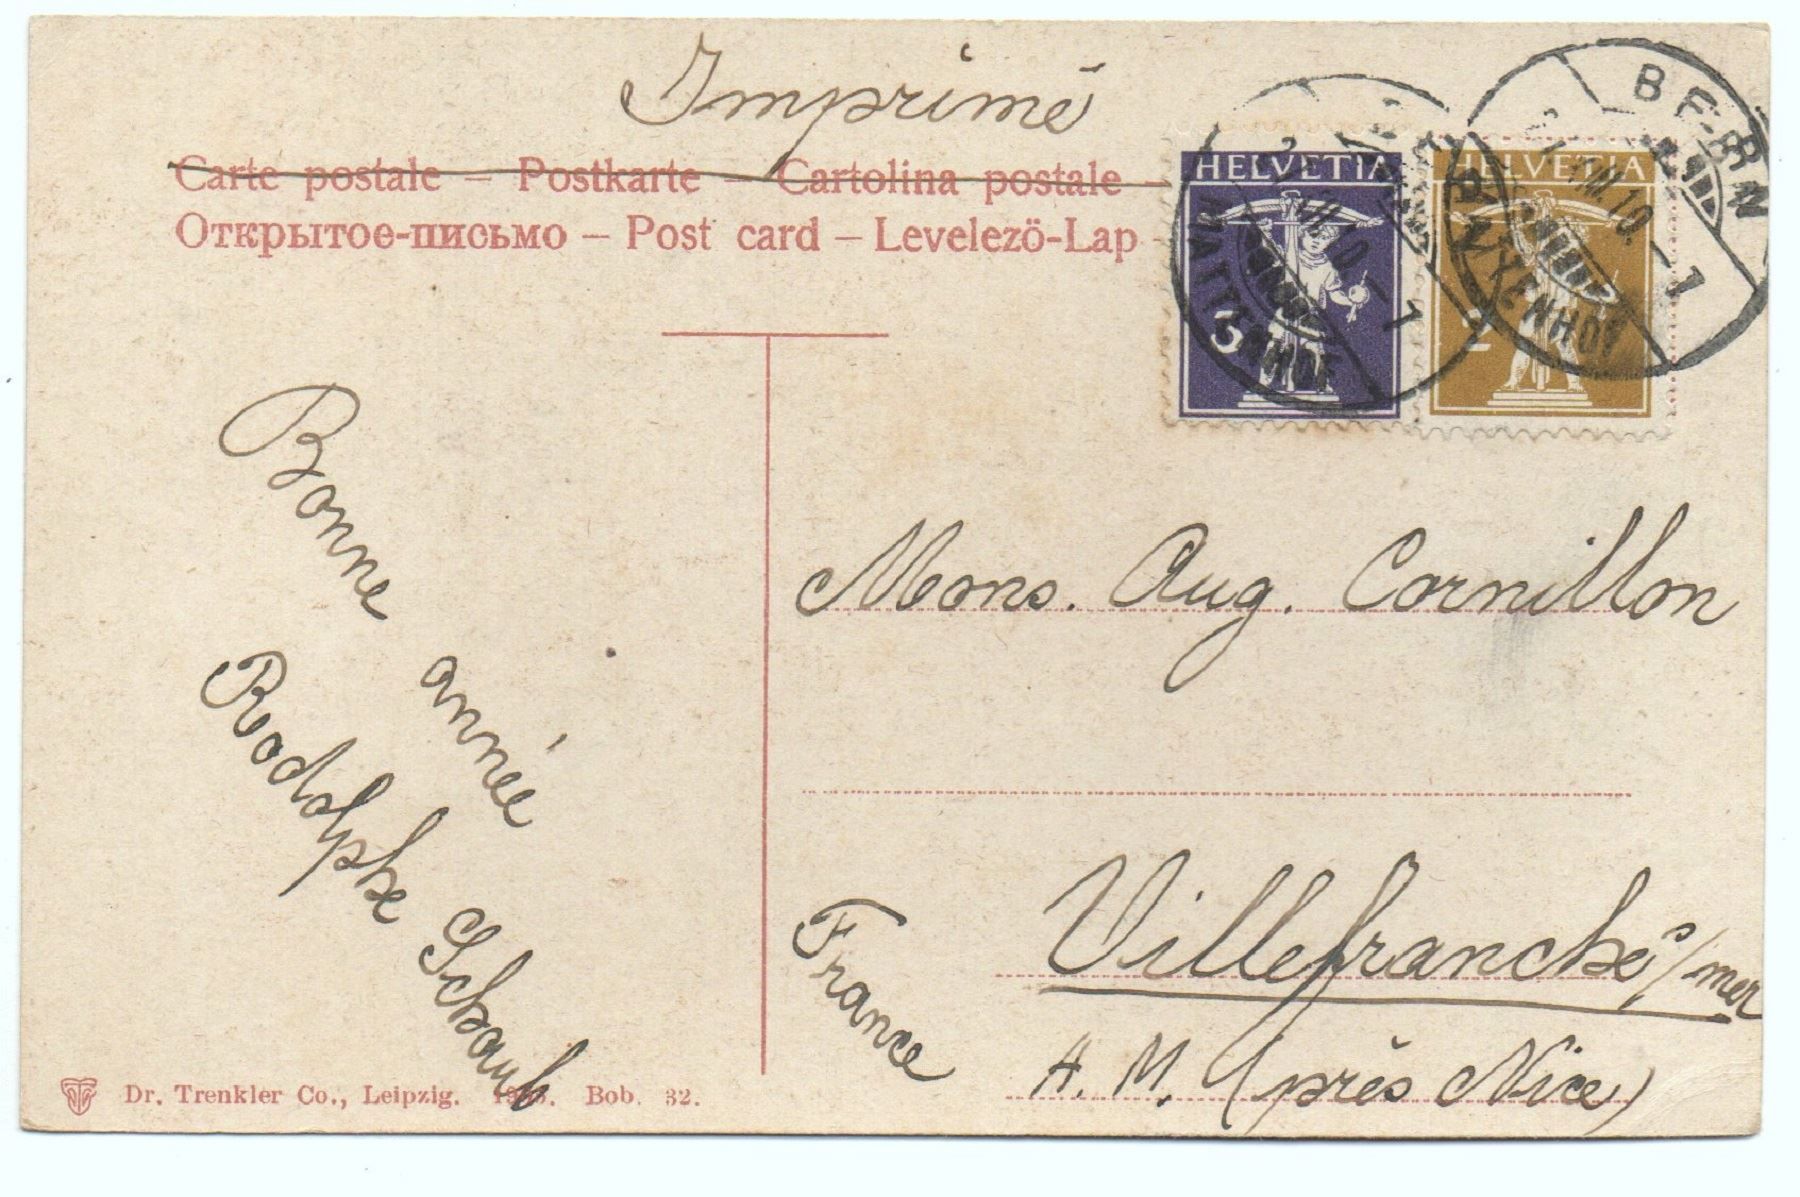 Imprimé
Carte postale – Postkarte – Cartolina postale –
Открытое-письмо – Post card – Levelező-Lap –
HELVETIA
3
HELVETIA
2
BERN
MATTENHOF
VII.10.-7
BERN
MATTENHOF
VIII.10.-7
Bonne année
Rodolphe Schaub
Mons. Aug. Cornillon
Villefranche s/mer
A. M. (près Nice)
France
Dr. Trenkler Co., Leipzig. Bob. 32.